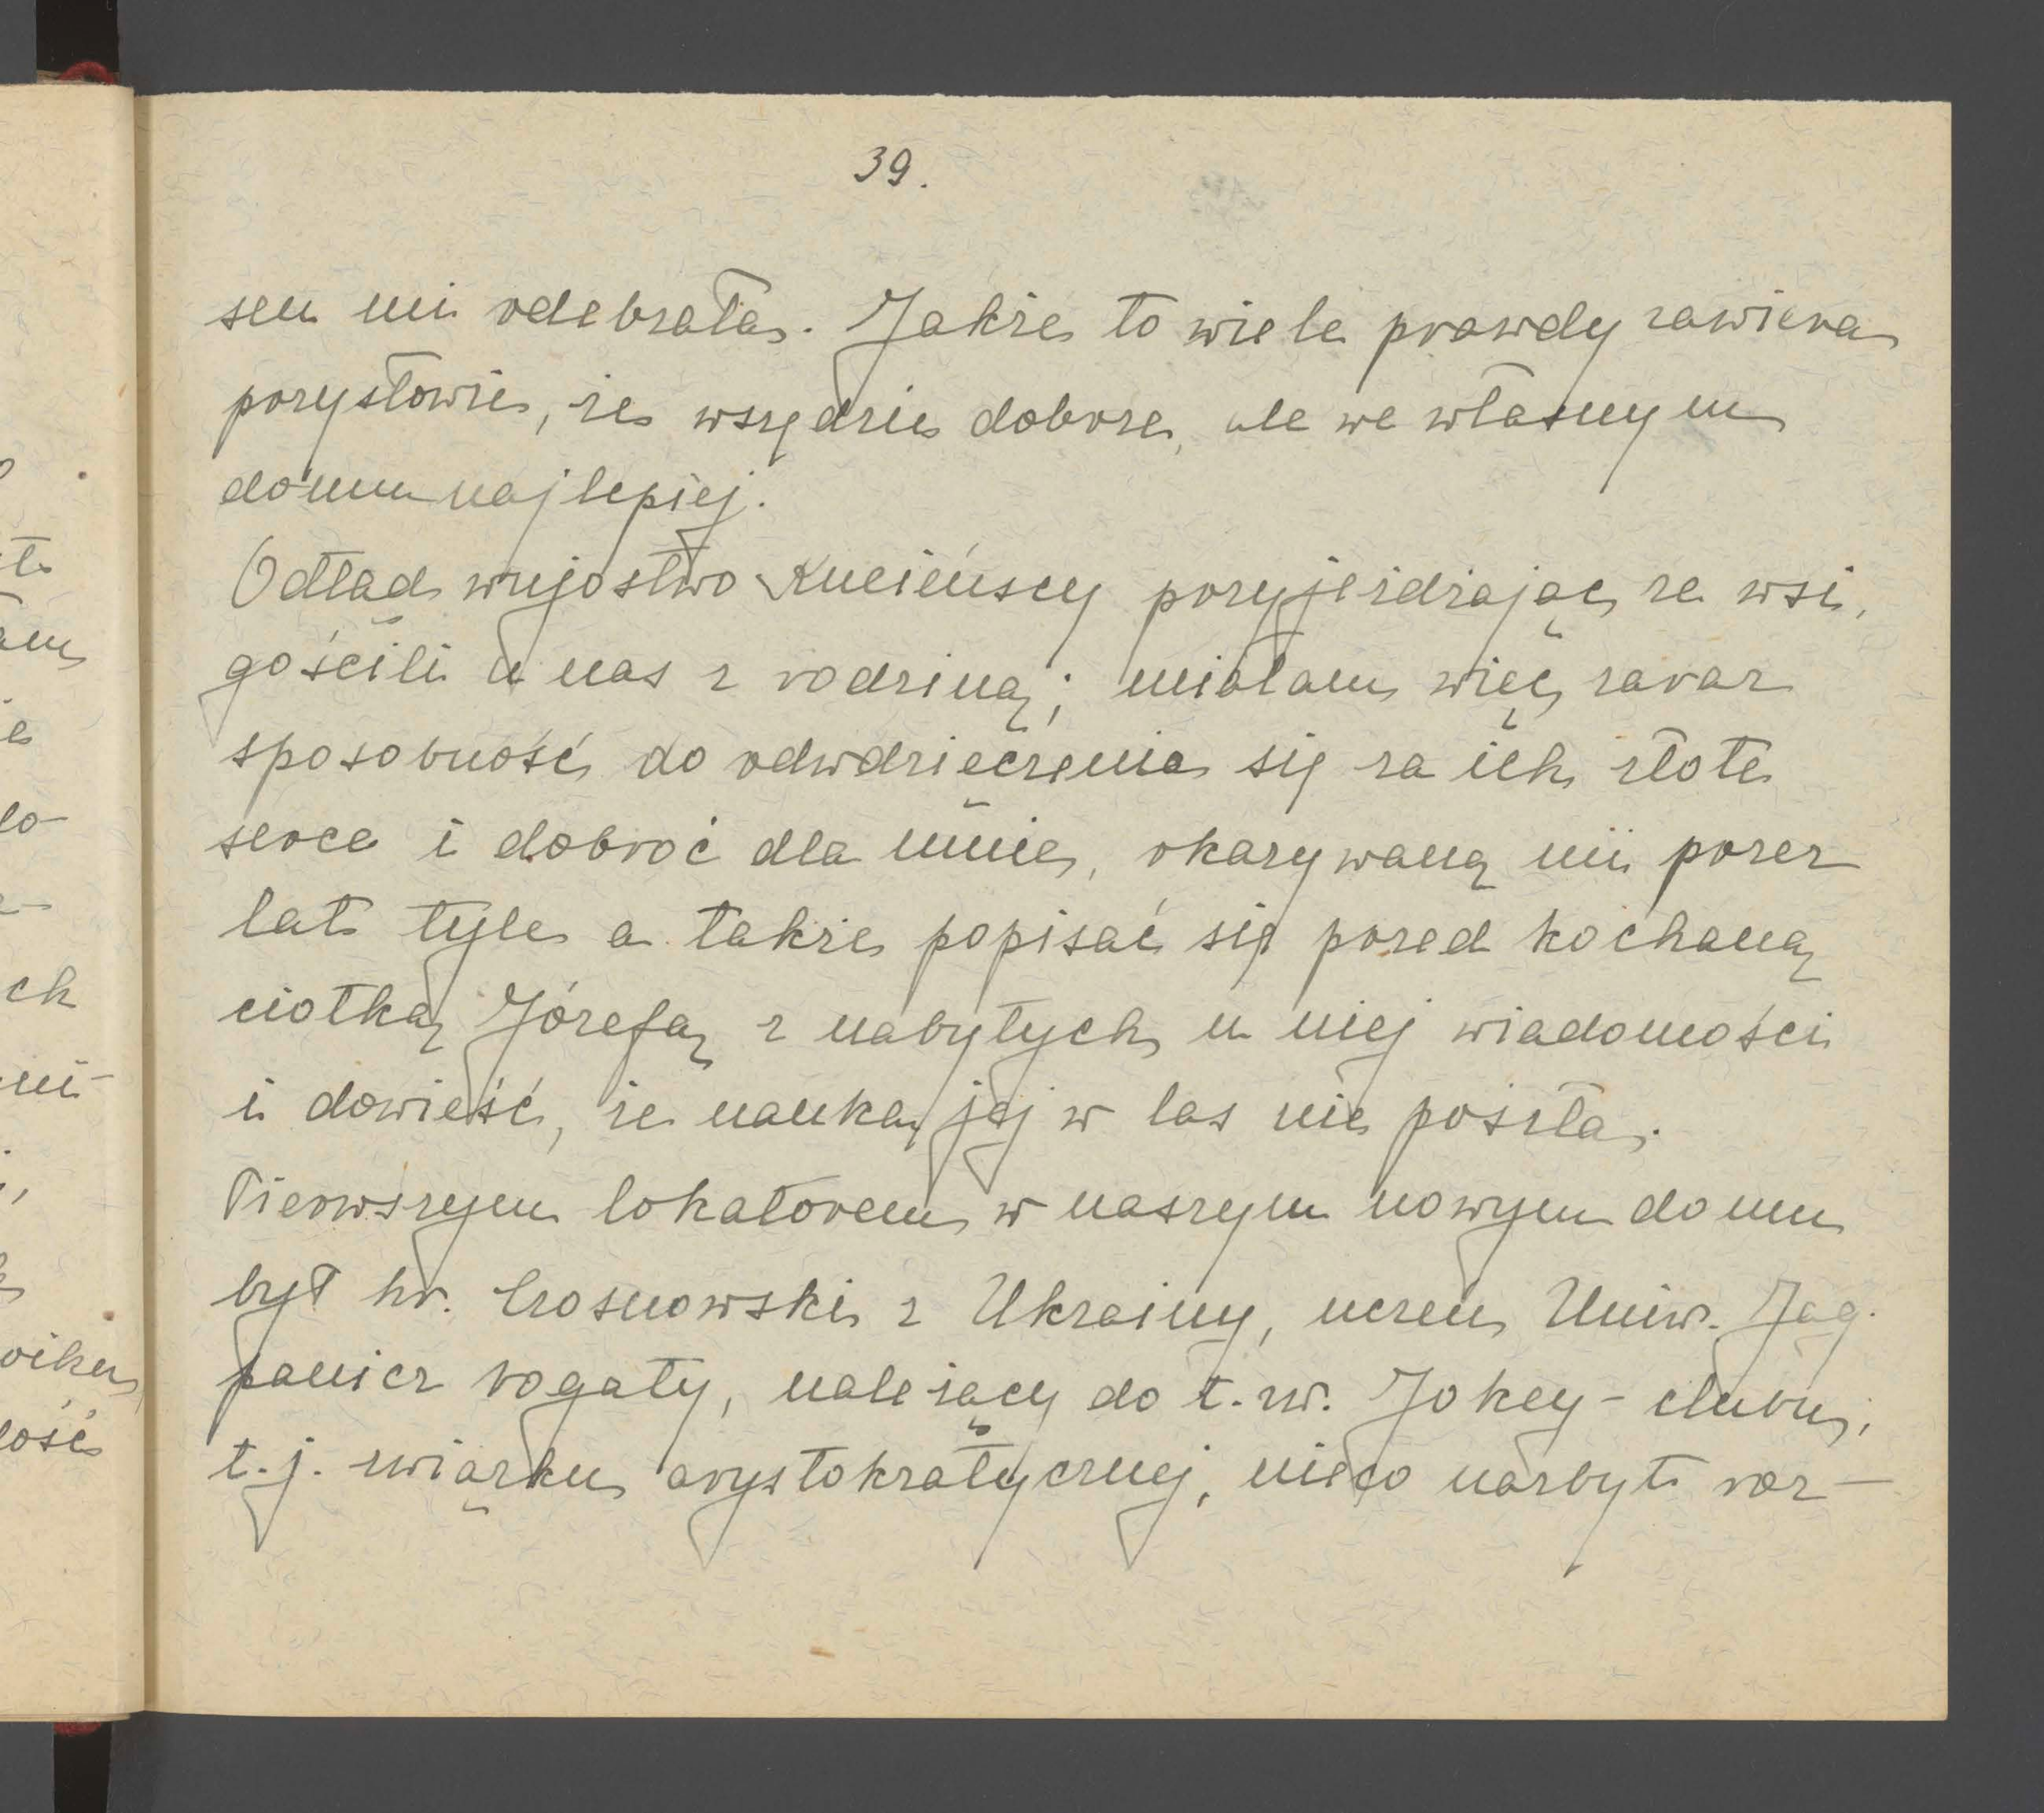 39.
sen mi odebrała. Jakże to wiele prawdy zawiera
przysłowie, że wszędzie dobrze, ale we własnym
domu najlepiej.
Odtąd wujostwo Kucieńscy przyjeżdżając ze wsi,
gościli u nas z rodziną; miałam więc zaraz
sposobność do odwdzięczenia się za ich złote
serce i dobroć dla mnie, okazywaną mi przez
lat tyle a także popisać się przed kochaną
ciotką Józefą z nabytych u niej wiadomości
i dowieść, że nauka jej w las nie poszła.
Pierwszym lokatorem w naszym nowym domu
był hr. Crosnowski z Ukrainy, uczeń Uniw. Jag.
panicz bogaty, należący do t. zw. Jokey-clubu,
t. j. związku arystokratycznej, nieco nazbyt roz-
to
am
ie
lo-
ch
mi-
oiku
łość